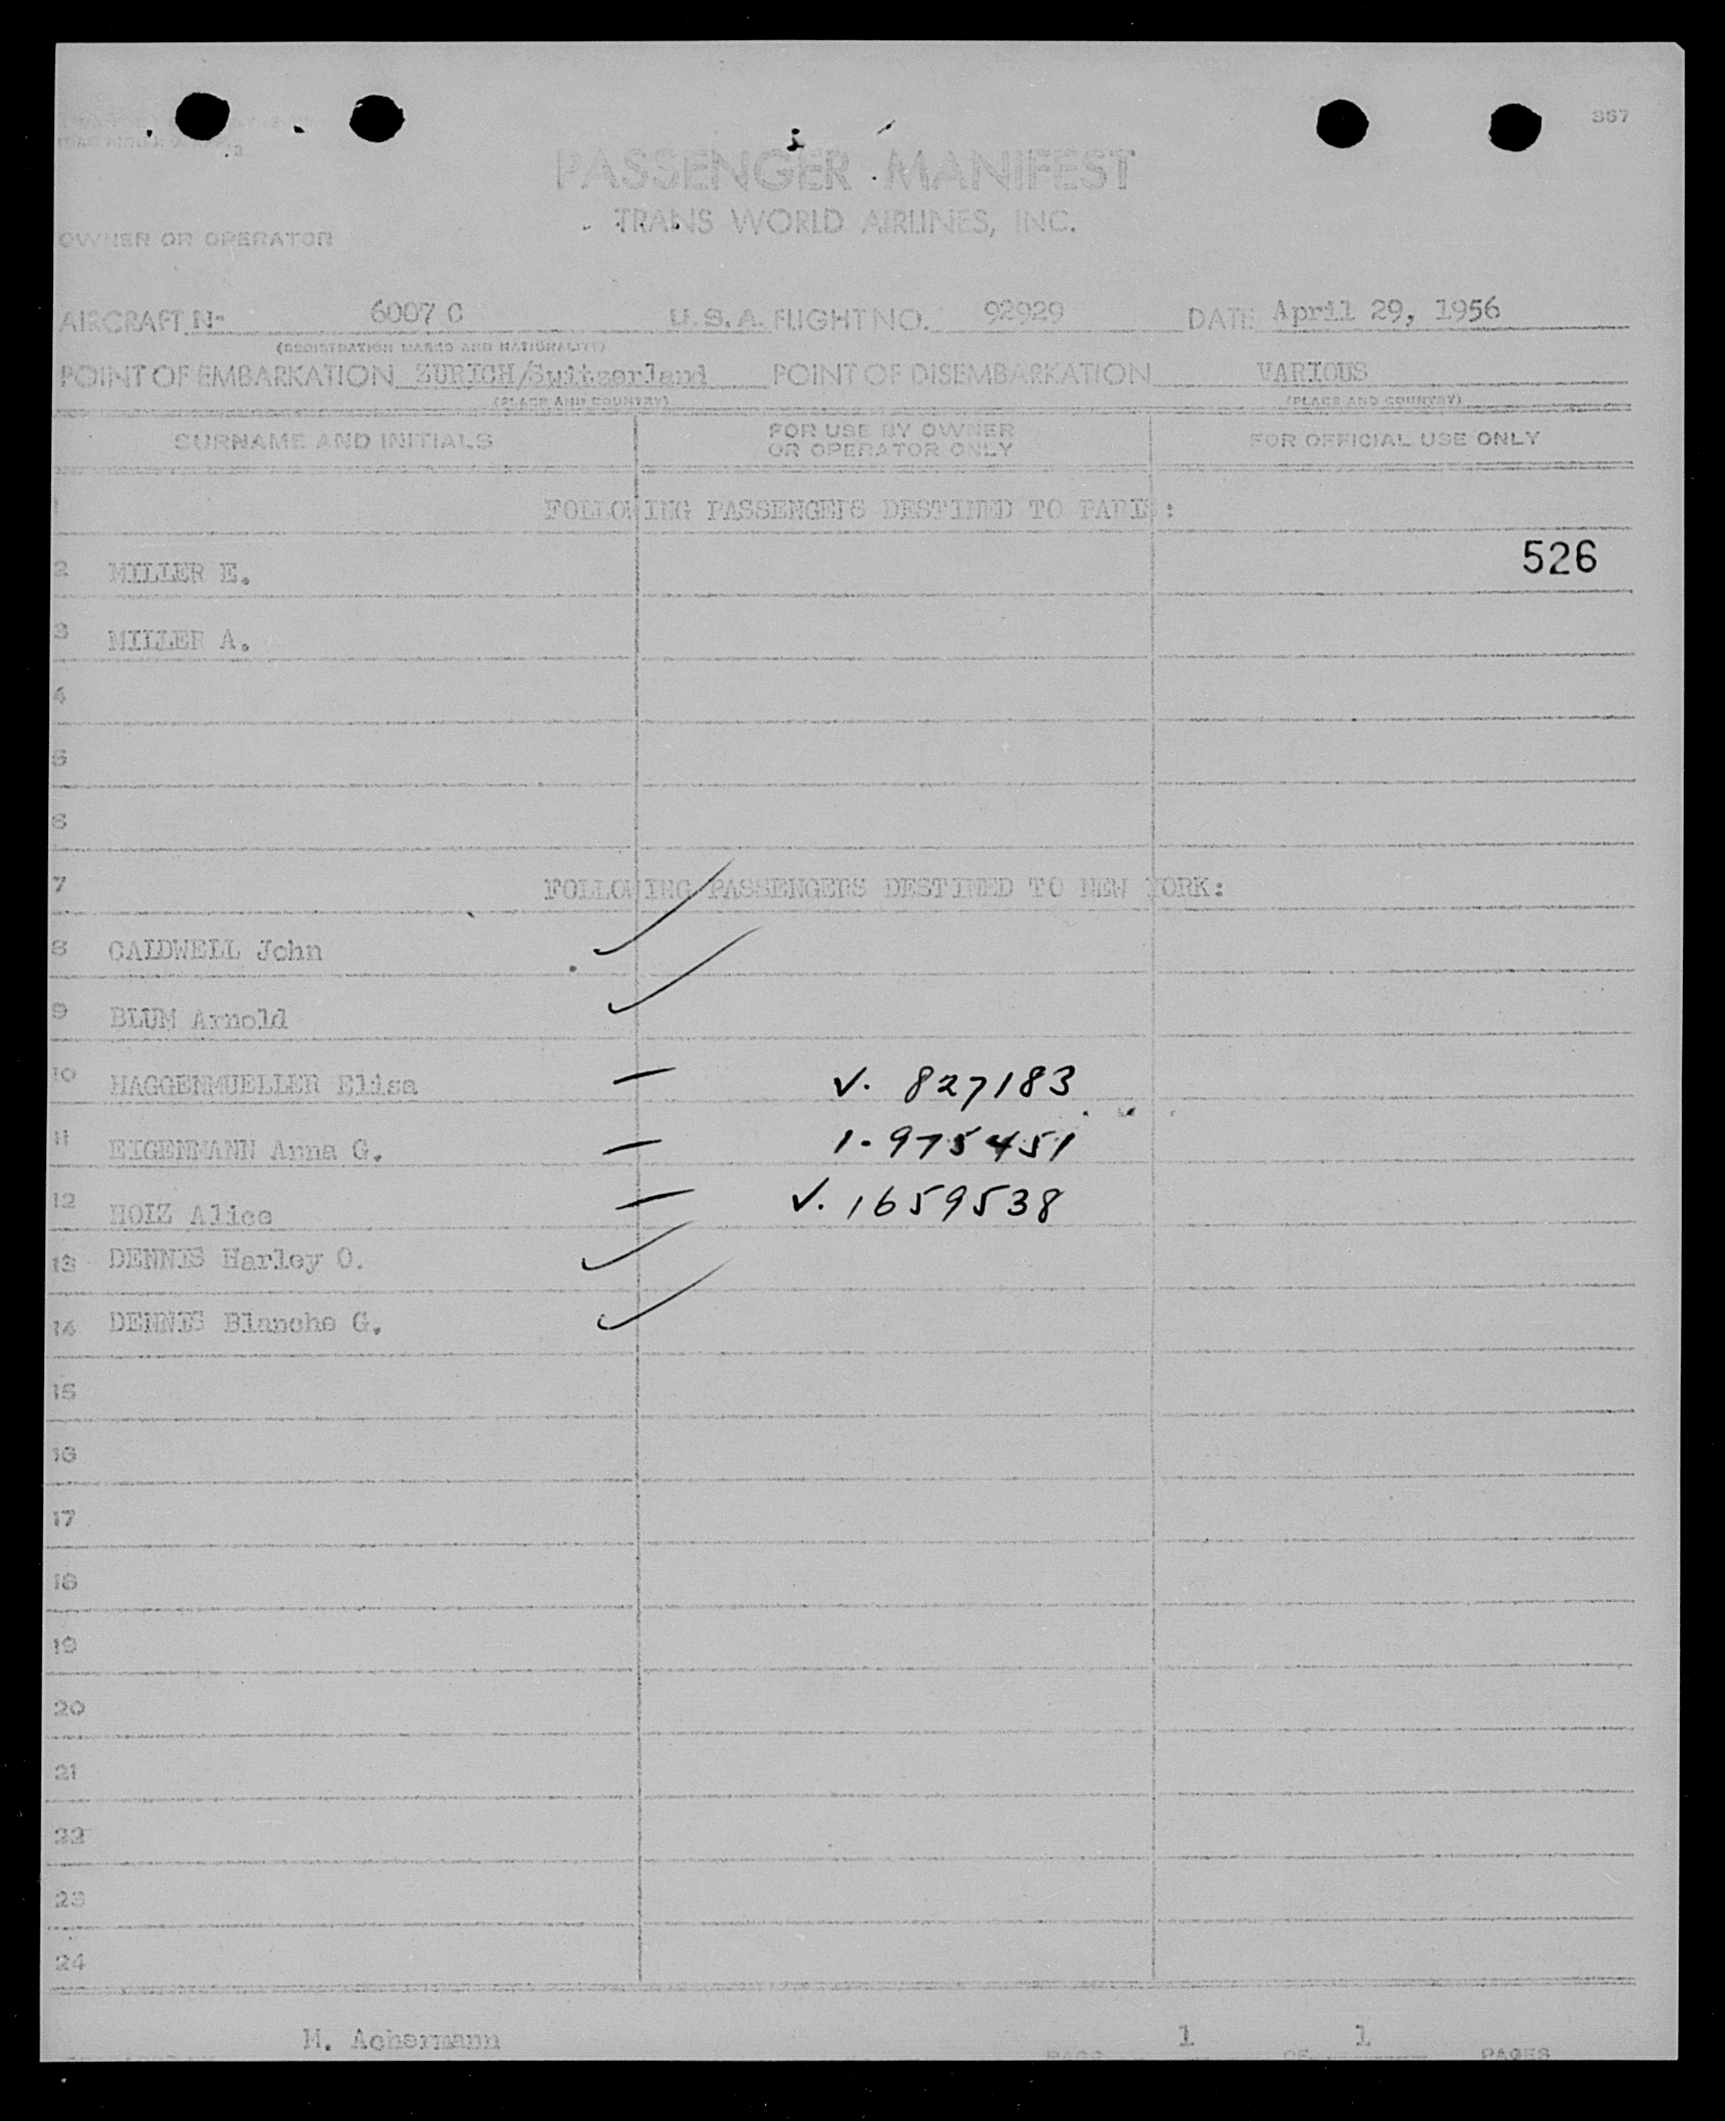 367
PASSENGER MANIFEST
TRANS WORLD AIRLINES, INC.
OWNER OR OPERATOR
AIRCRAFT N- 6007 C U.S.A. FLIGHT NO. 92929 DATE April 29, 1956
(REGISTRATION MARKS AND NATIONALITY)
POINT OF EMBARKATION ZURICH/Switzerland POINT OF DISEMBARKATION VARIOUS
(PLACE AND COUNTRY) (PLACE AND COUNTRY)
SURNAME AND INITIALS FOR USE BY OWNER OR OPERATOR ONLY FOR OFFICIAL USE ONLY
1 FOLLOWING PASSENGERS DESTINED TO PARIS:
526
2 MILLER E.
3 MILLER A.
4
5
6
7 FOLLOWING PASSENGERS DESTINED TO NEW YORK:
8 CALDWELL John
9 BLUM Arnold
10 HAGGENMUELLER Elisa — V. 827183
11 EIGENMANN Anna G. — 1-975451
12 HOLZ Alice — V. 1659538
13 DENNIS Harley O.
14 DENNIS Blanche G.
15
16
17
18
19
20
21
22
23
24
M. Achermann
PAGE 1 OF 1 PAGES